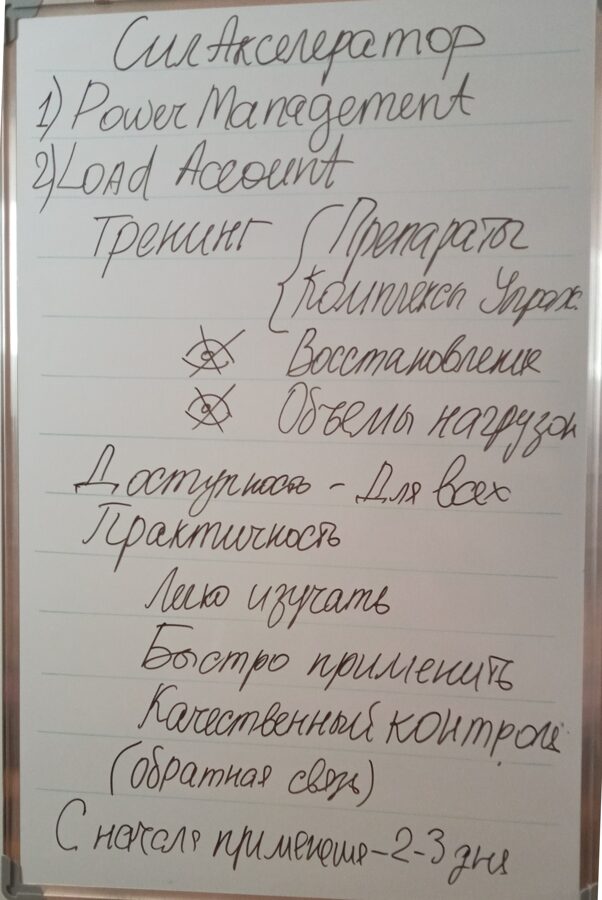 СилАкселератор
1) Power Management
2) Load Account
Тренинг { Препараты
Комплексы Упраж.
Восстановление
Объемы нагрузок
Доступность - Для всех
Практичность
Легко изучать
Быстро применить
Качественный контроль
(обратная связь)
С начала применения - 2-3 дня